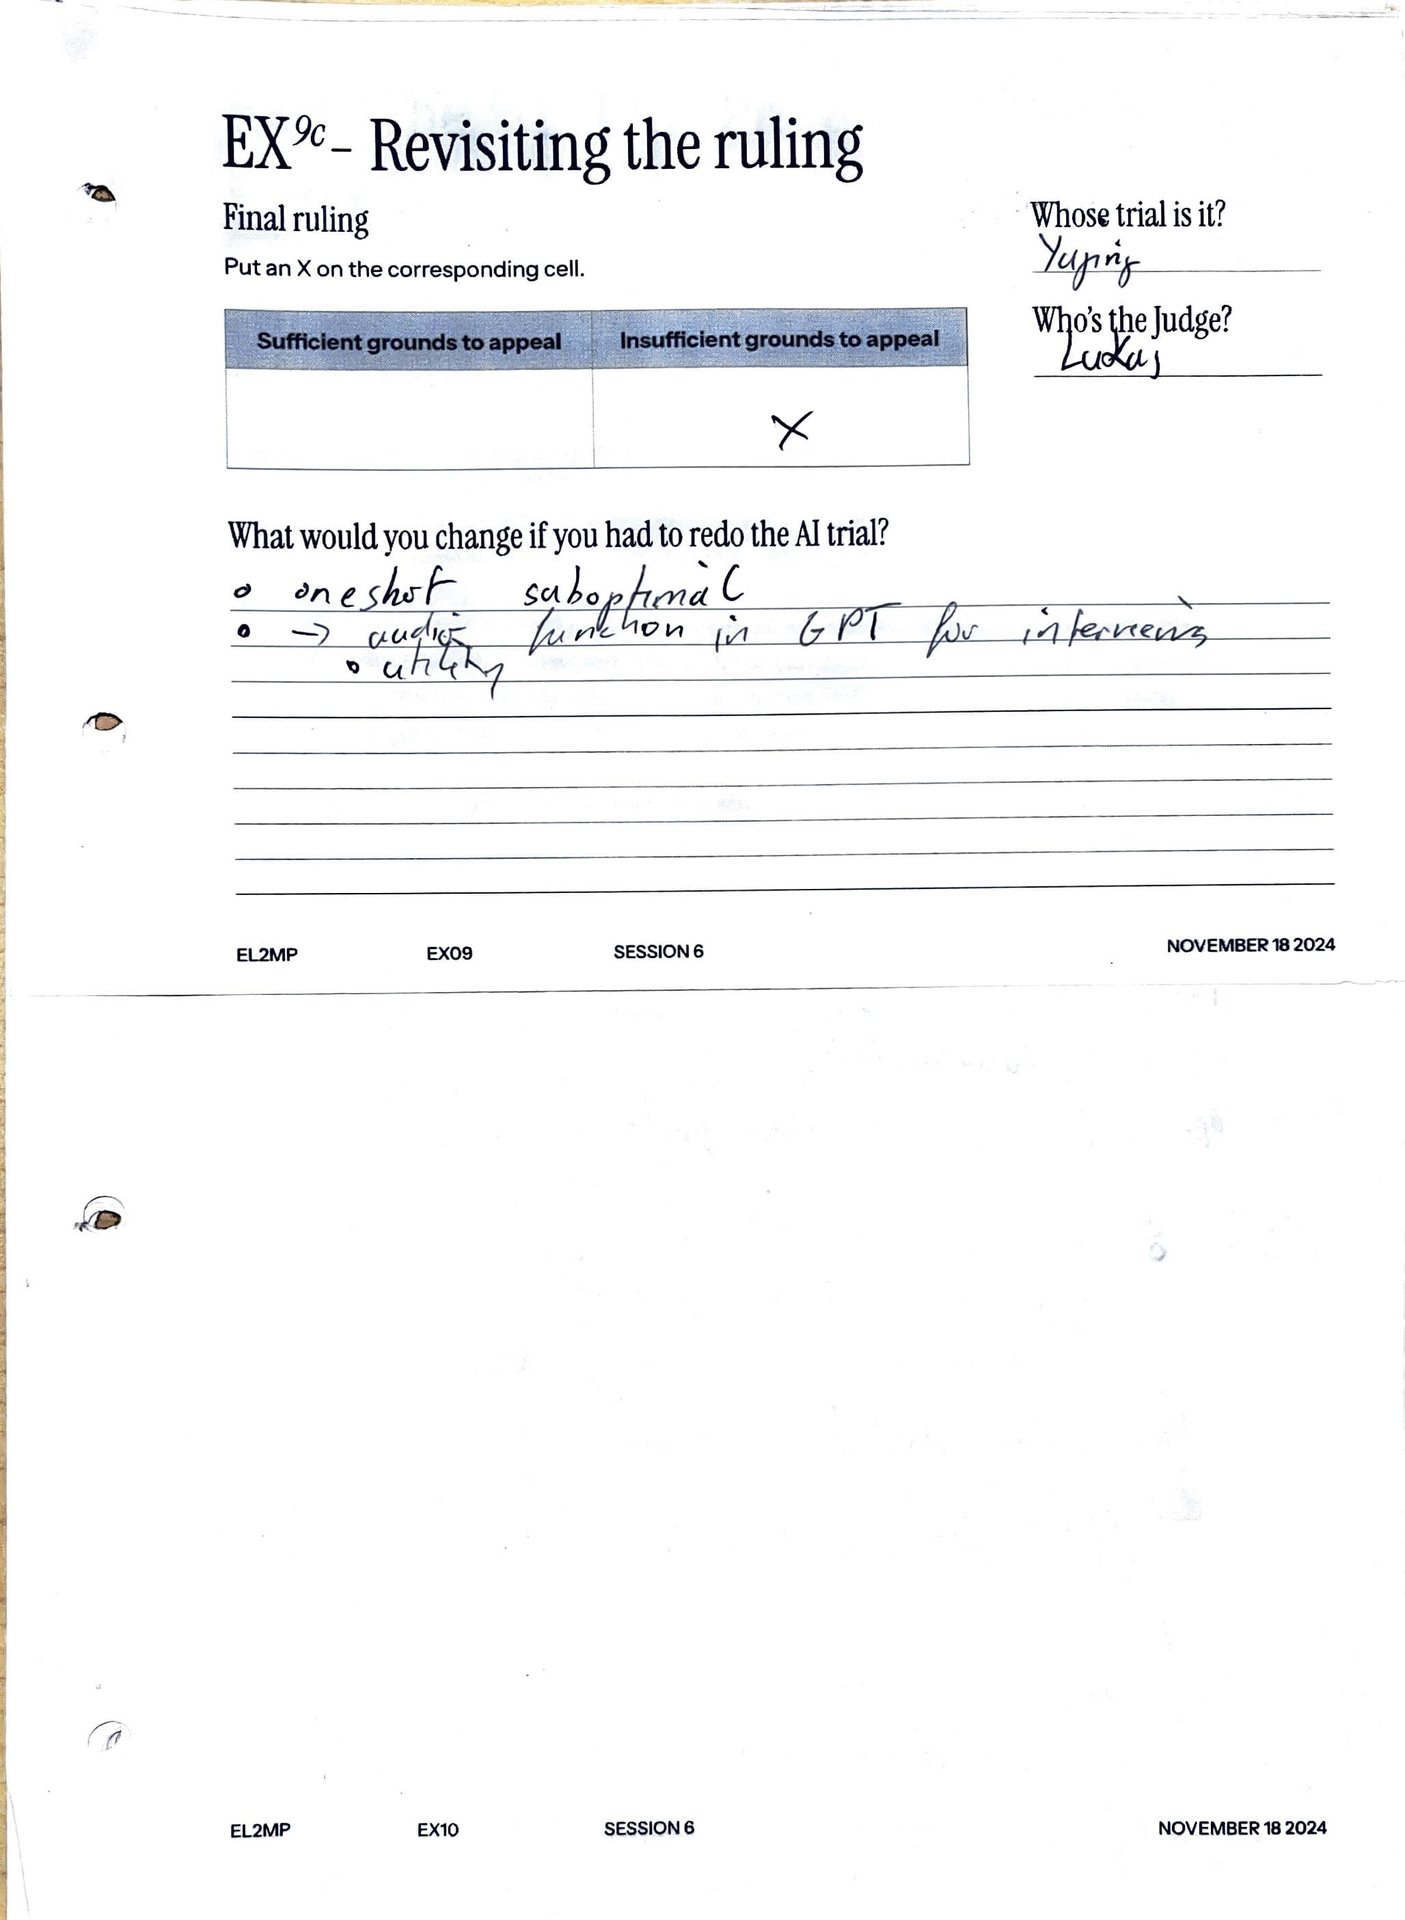 EX9c – Revisiting the ruling
Final ruling
Put an X on the corresponding cell.
Whose trial is it?
Yuping
Who's the Judge?
Lukas
Sufficient grounds to appeal
Insufficient grounds to appeal
X
What would you change if you had to redo the AI trial?
o oneshot suboptimal
o → audio function in GPT for interviews
o utility
EL2MP EX09 SESSION 6 NOVEMBER 18 2024
EL2MP EX10 SESSION 6 NOVEMBER 18 2024